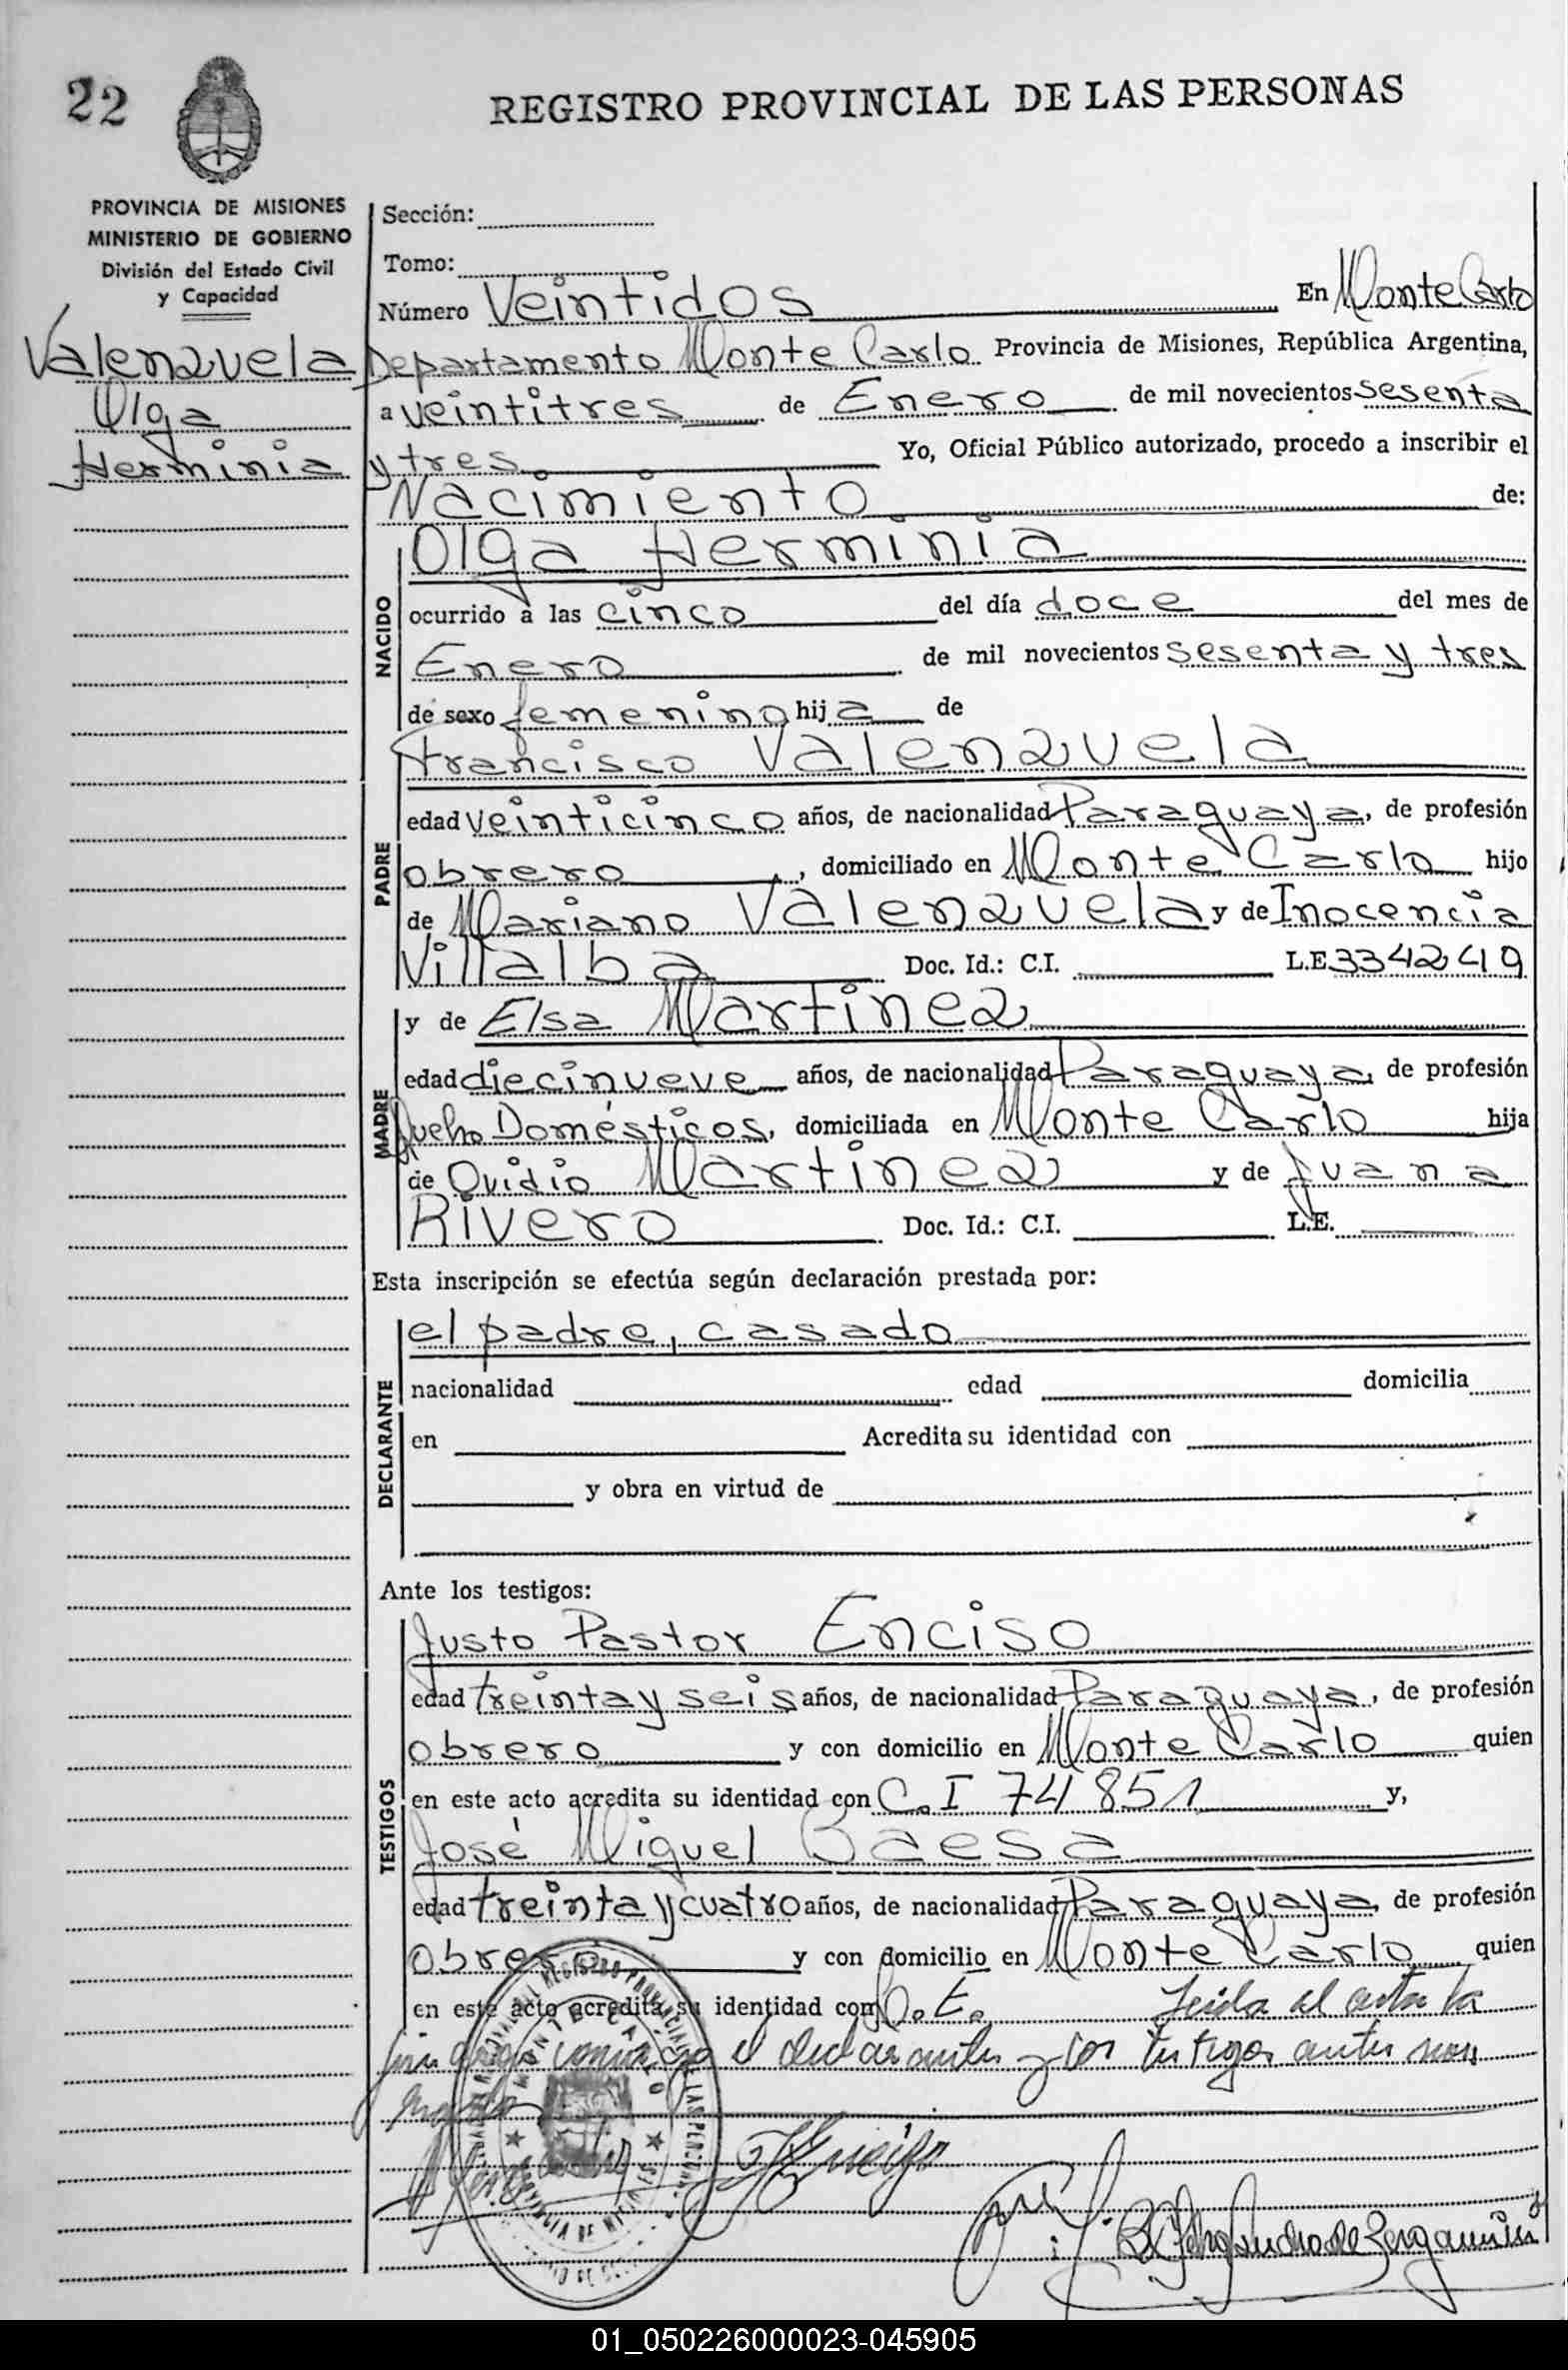 22
REGISTRO PROVINCIAL DE LAS PERSONAS
PROVINCIA DE MISIONES
MINISTERIO DE GOBIERNO
División del Estado Civil
y Capacidad
Valenzuela
Olga
Herminia
Sección:
Tomo:
Número Veintidos En Monte Carlo
Departamento Monte Carlo Provincia de Misiones, República Argentina,
a veintitres de Enero de mil novecientos sesenta
y tres Yo, Oficial Público autorizado, procedo a inscribir el
Nacimiento de:
NACIDO
Olga Herminia
ocurrido a las cinco del día doce del mes de
Enero de mil novecientos sesenta y tres
de sexo femenino hija de
PADRE
Francisco Valenzuela
edad veinticinco años, de nacionalidad Paraguaya, de profesión
obrero, domiciliado en Monte Carlo hijo
de Mariano Valenzuela y de Inocencia
Villalba Doc. Id.: C.I. L.E. 3342419
MADRE
y de Elsa Martinez
edad diecinueve años, de nacionalidad Paraguaya, de profesión
Domésticos, domiciliada en Monte Carlo hija
de Ovidio Martinez y de Juana
Rivero Doc. Id.: C.I. L.E.
Esta inscripción se efectúa según declaración prestada por:
DECLARANTE
el padre, casado
nacionalidad edad domicilia
en Acredita su identidad con
y obra en virtud de
Ante los testigos:
TESTIGOS
Justo Pastor Enciso
edad treinta y seis años, de nacionalidad Paraguaya, de profesión
obrero y con domicilio en Monte Carlo quien
en este acto acredita su identidad con C.I 74851 y,
José Miguel Baesa
edad treinta y cuatro años, de nacionalidad Paraguaya, de profesión
obrero y con domicilio en Monte Carlo quien
en este acto acredita su identidad con Leida el acta la
conmigo el declarante y los testigos antes
01_050226000023-045905